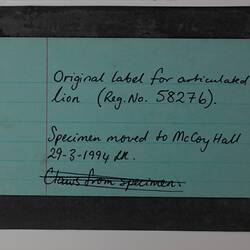 Original label for articulated
lion (Reg. No. 58276).
Specimen moved to McCoy Hall
29-3-1994
Claws from specimen.